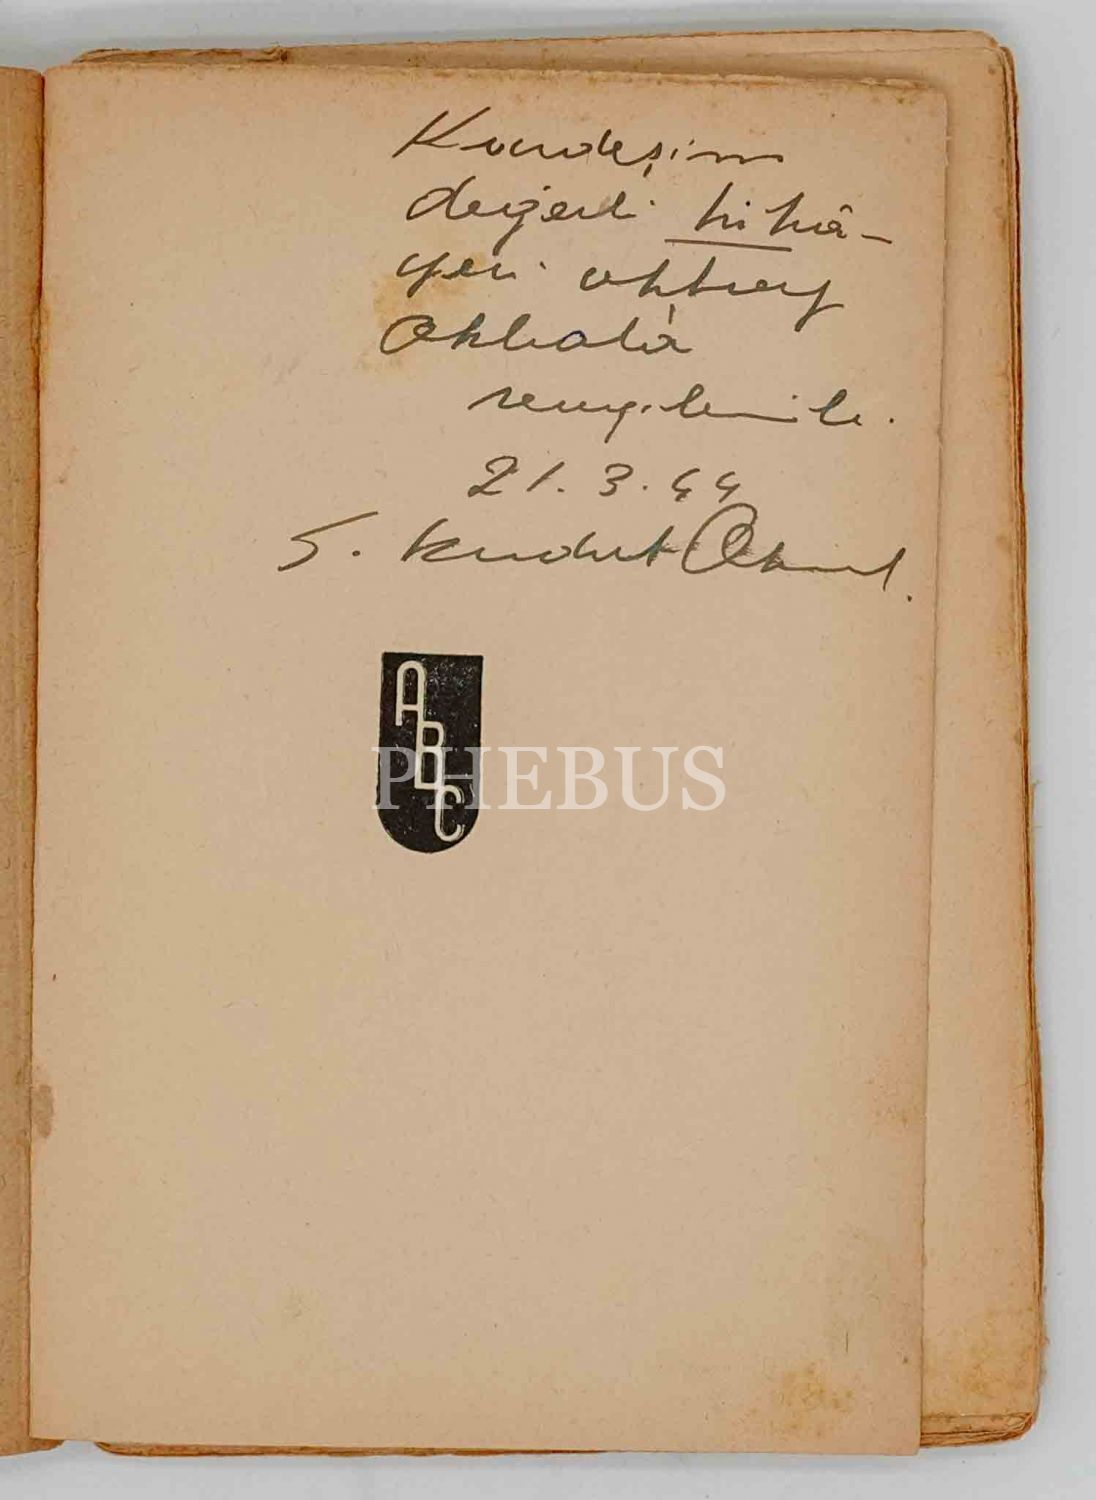 Kardeşim
değerli hikâ-
yeci Oktay
Akbal'a
sevgilerimle.
21.3.44
S. Kudret Aksal.
ABC
PHEBUS